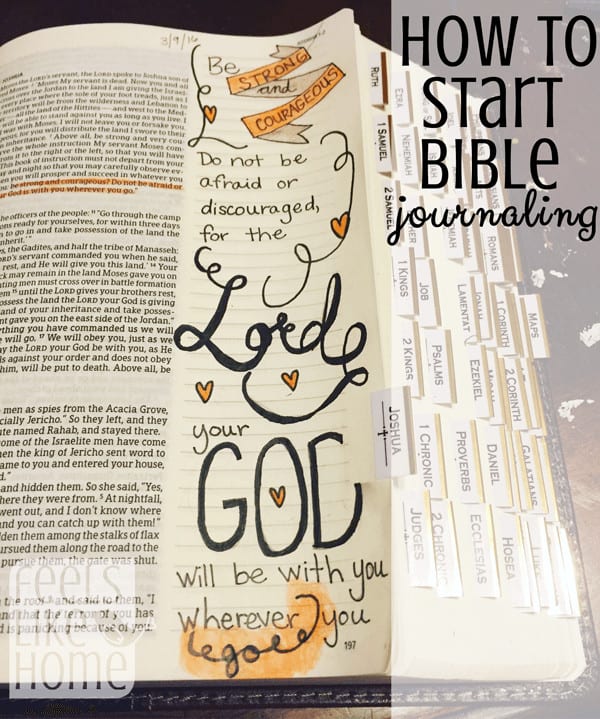 HOW TO
START
BIBLE
journaling
3/9/16
Be
STRONG
and
COURAGEOUS
Do not be
afraid or
discouraged,
for the
Lord
your
GOD
will be with you
wherever you
goe
197
JOSHUA
the LORD's servant, the LORD spoke to Joshua son of
"Moses My servant is dead. Now you and all
the Jordan to the land I am giving the Israel
every place where the sole of your foot treads, just as I
will be from the wilderness and Lebanon to
all the land of the Hittites — and west to the Med
will be able to stand against you as long as you live.
was with Moses. I will not leave you or forsake you.
for you will distribute the land I swore to the
inheritance. Above all, be strong and very cou
the whole instruction My servant Moses com
from it to the right or left, so that you will have
This book of instruction must not depart from your
day and night so that you may carefully observe ev
then you will prosper and succeed in whatever you
be strong and courageous? Do not be afraid or
God is with you wherever you go."
the officers of the people: 11 "Go through the camp
ons ready for yourselves, for within three days
n to go in and take possession of the land the
inherit.'"
s, the Gadites, and half the tribe of Manasseh:
ORD's servant commanded you when he said,
rest, and He will give you this land.' 14 Your
ck may remain in the land Moses gave you on
ting men must cross over in battle formation
em 15 until the LORD gives your brothers rest,
ossess the land the LORD your God is giving
and of your inheritance and take posses-
nt gave you on the east side of the Jordan."
ything you have commanded us we will
will go. 17 We will obey you, just as we
y the LORD your God be with you, as He
ls against your order and does not obey
him, will be put to death. Above all, be
men as spies from the Acacia Grove,
cially Jericho." So they left, and they
ute named Rahab, and stayed there.
ome of the Israelite men have come
hen the king of Jericho sent word to
ame to you and entered your house,
d."
and hidden them. So she said, "Yes,
here they were from. 5 At nightfall,
went out, and I don't know where
nd you can catch up with them!"
dden them among the stalks of flax
ursued them along the road to the
pursue them, the gate was shut.
the roof and said to them, "I
nd that the terror of you has
d is panicking because of you.
RUTH
1 SAMUEL
2 SAMUEL
1 KINGS
2 KINGS
JOSHUA
EZRA
NEHEMIAH
JOB
PSALMS
1 CHRONIC
JUDGES
LAMENTAT
EZEKIEL
PROVERBS
2 CHRONIC
ROMANS
JONAH
1 CORINTH
2 CORINTH
DANIEL
ECCLESIAS
MAPS
GALATIANS
HOSEA
LUKE
FEELS
LIKE
HOME